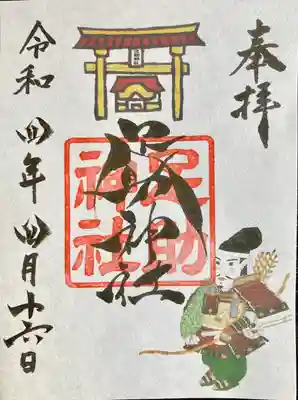 奉拝
足助神社
足助
神社
令和四年四月十六日